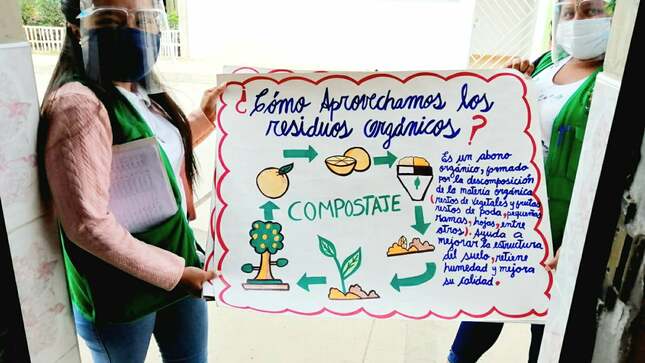 ¿Cómo Aprovechamos los
residuos orgánicos?
COMPOSTAJE
Es un abono
orgánico, formado
por la descomposición
de la materia orgánica
(restos de vegetales y frutas
restos de poda, pequeñas
ramas, hojas, entre
otros). ayuda a
mejorar la estructura
del suelo, retiene
humedad y mejora
su calidad.